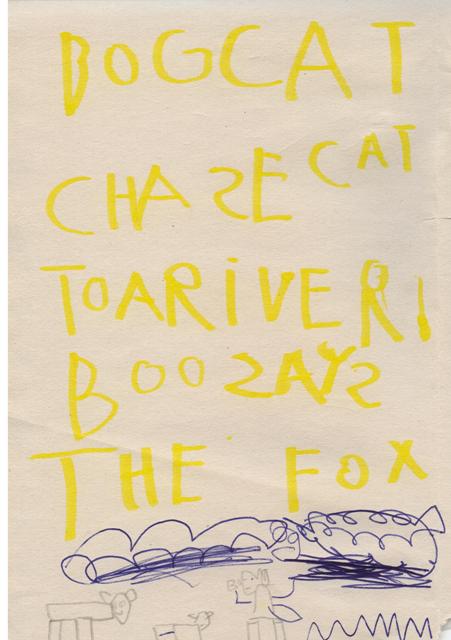 DOGCAT
CHASE CAT
TOARiVER!
BOOSAYS
THE FOX